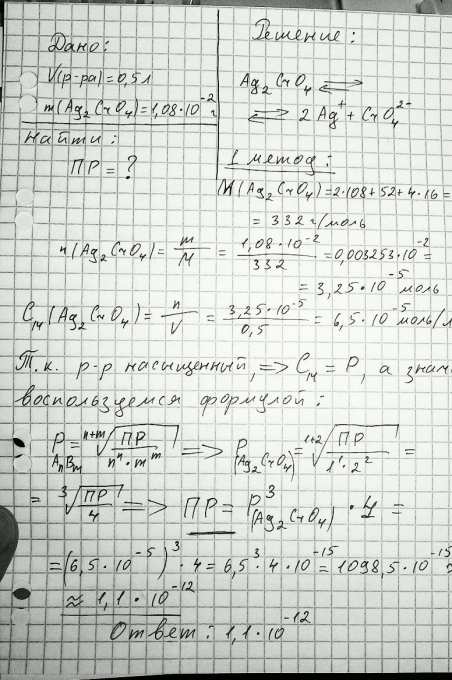 Дано:
V(р-ра)=0,5л
m(Ag₂CrO₄)=1,08·10⁻² г
Найти:
ПР = ?
Решение:
Ag₂CrO₄ ⇄
⇄ 2Ag⁺ + CrO₄²⁻
1 метод:
M(Ag₂CrO₄)=2·108+52+4·16=
= 332 г/моль
n(Ag₂CrO₄)= m/M = 1,08·10⁻²/332 =0,003253·10⁻²=
= 3,25·10⁻⁵ моль
Cм(Ag₂CrO₄)= n/V = 3,25·10⁻⁵/0,5 = 6,5·10⁻⁵ моль/л
Т.к. р-р насыщенный, => Cм = P, а знач
воспользуемся формулой:
P AnBm = ⁿ⁺ᵐ√(ПР/nⁿ·mᵐ) => P(Ag₂CrO₄) = ¹⁺²√(ПР/1¹·2²) =
= ³√(ПР/4) => ПР = P³(Ag₂CrO₄) · 4 =
=(6,5·10⁻⁵)³·4=6,5³·4·10⁻¹⁵=1098,5·10⁻¹⁵
≈ 1,1·10⁻¹²
Ответ: 1,1·10⁻¹²